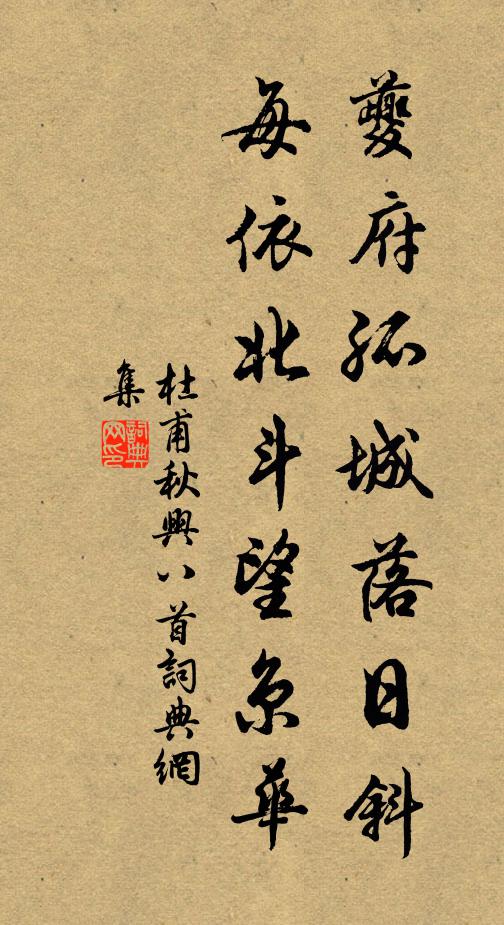 夔府孤城落日斜
每依北斗望京華
杜甫秋興八首詞典網
集
詞典網印